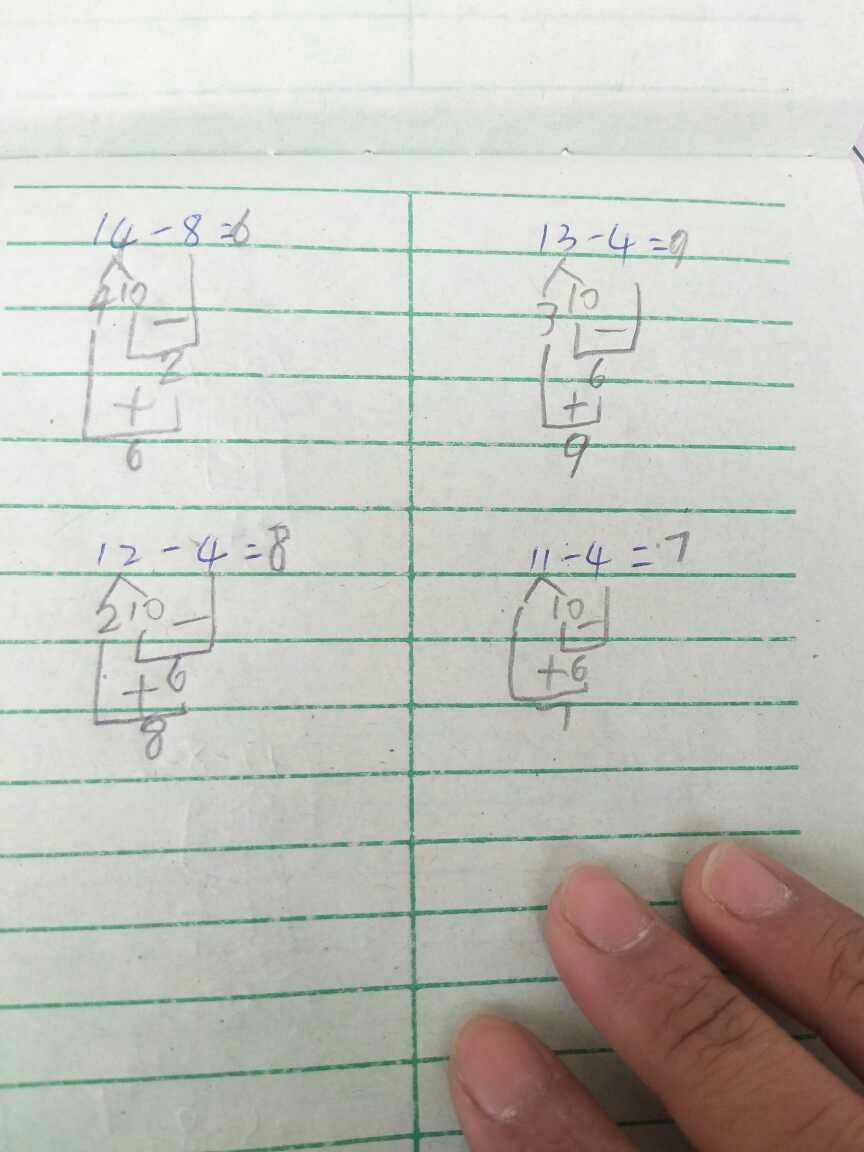 14-8=6
4 10
-
2
+
6
13-4=9
3 10
-
6
+
9
12-4=8
2 10
-
6
+
8
11-4=7
10
-
+6
7